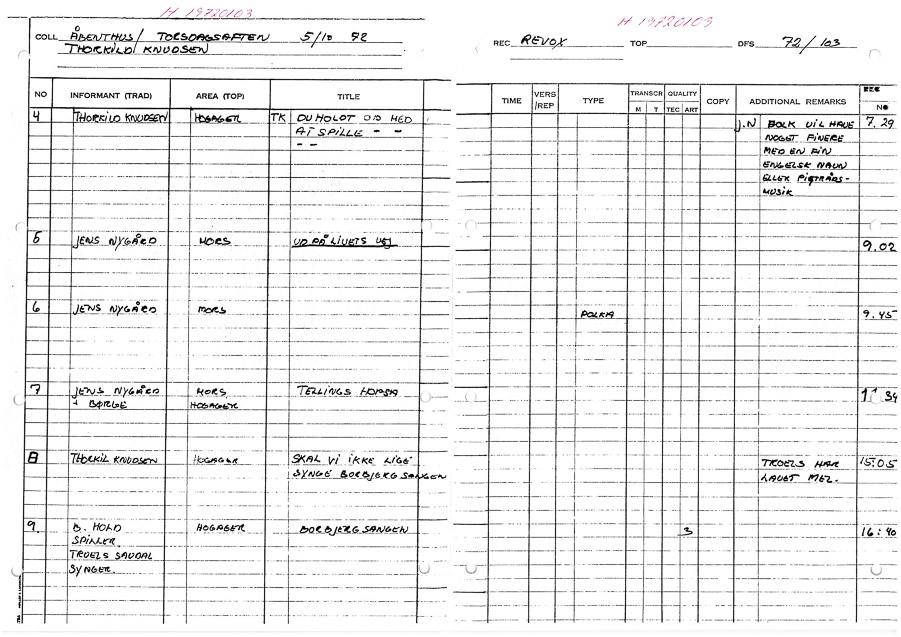 H 19720103
COLL ÅBENTHUS / TORSDAGSAFTEN 5/10 72
THORKILD KNUDSEN
NO INFORMANT (TRAD) AREA (TOP) TITLE
4 THORKILD KNUDSEN HOGAGER TK DU HOLDT OP MED
AT SPILLE – –
– –
5 JENS NYGÅRD MORS UD PÅ LIVETS VEJ
6 JENS NYGÅRD MORS
7 JENS NYGÅRD MORS TELLINGS HOPSA
+ BØRGE HOGAGER
8 THORKIL KNUDSEN HOGAGER SKAL VI IKKE LIGE
SYNGE BORBJERG SANGEN
9. B. HOLD HOGAGER BORBJERG SANGEN
SPILLER.
TROELS
SYNGER.
H 19720103
REC REVOX TOP DFS 72/103
TIME VERS /REP TYPE TRANSCR M T QUALITY TEC ART COPY ADDITIONAL REMARKS REC NO
J.N FOLK VIL HAVE 7.29
NOGET FINERE
MED EN FIN
ENGELSK NAVN
ELLER PIGTRÅDS-
MUSIK
9.02
POLKA 9.45
11 34
TROELS HAR 15.05
LAVET MEL.
3 16:40